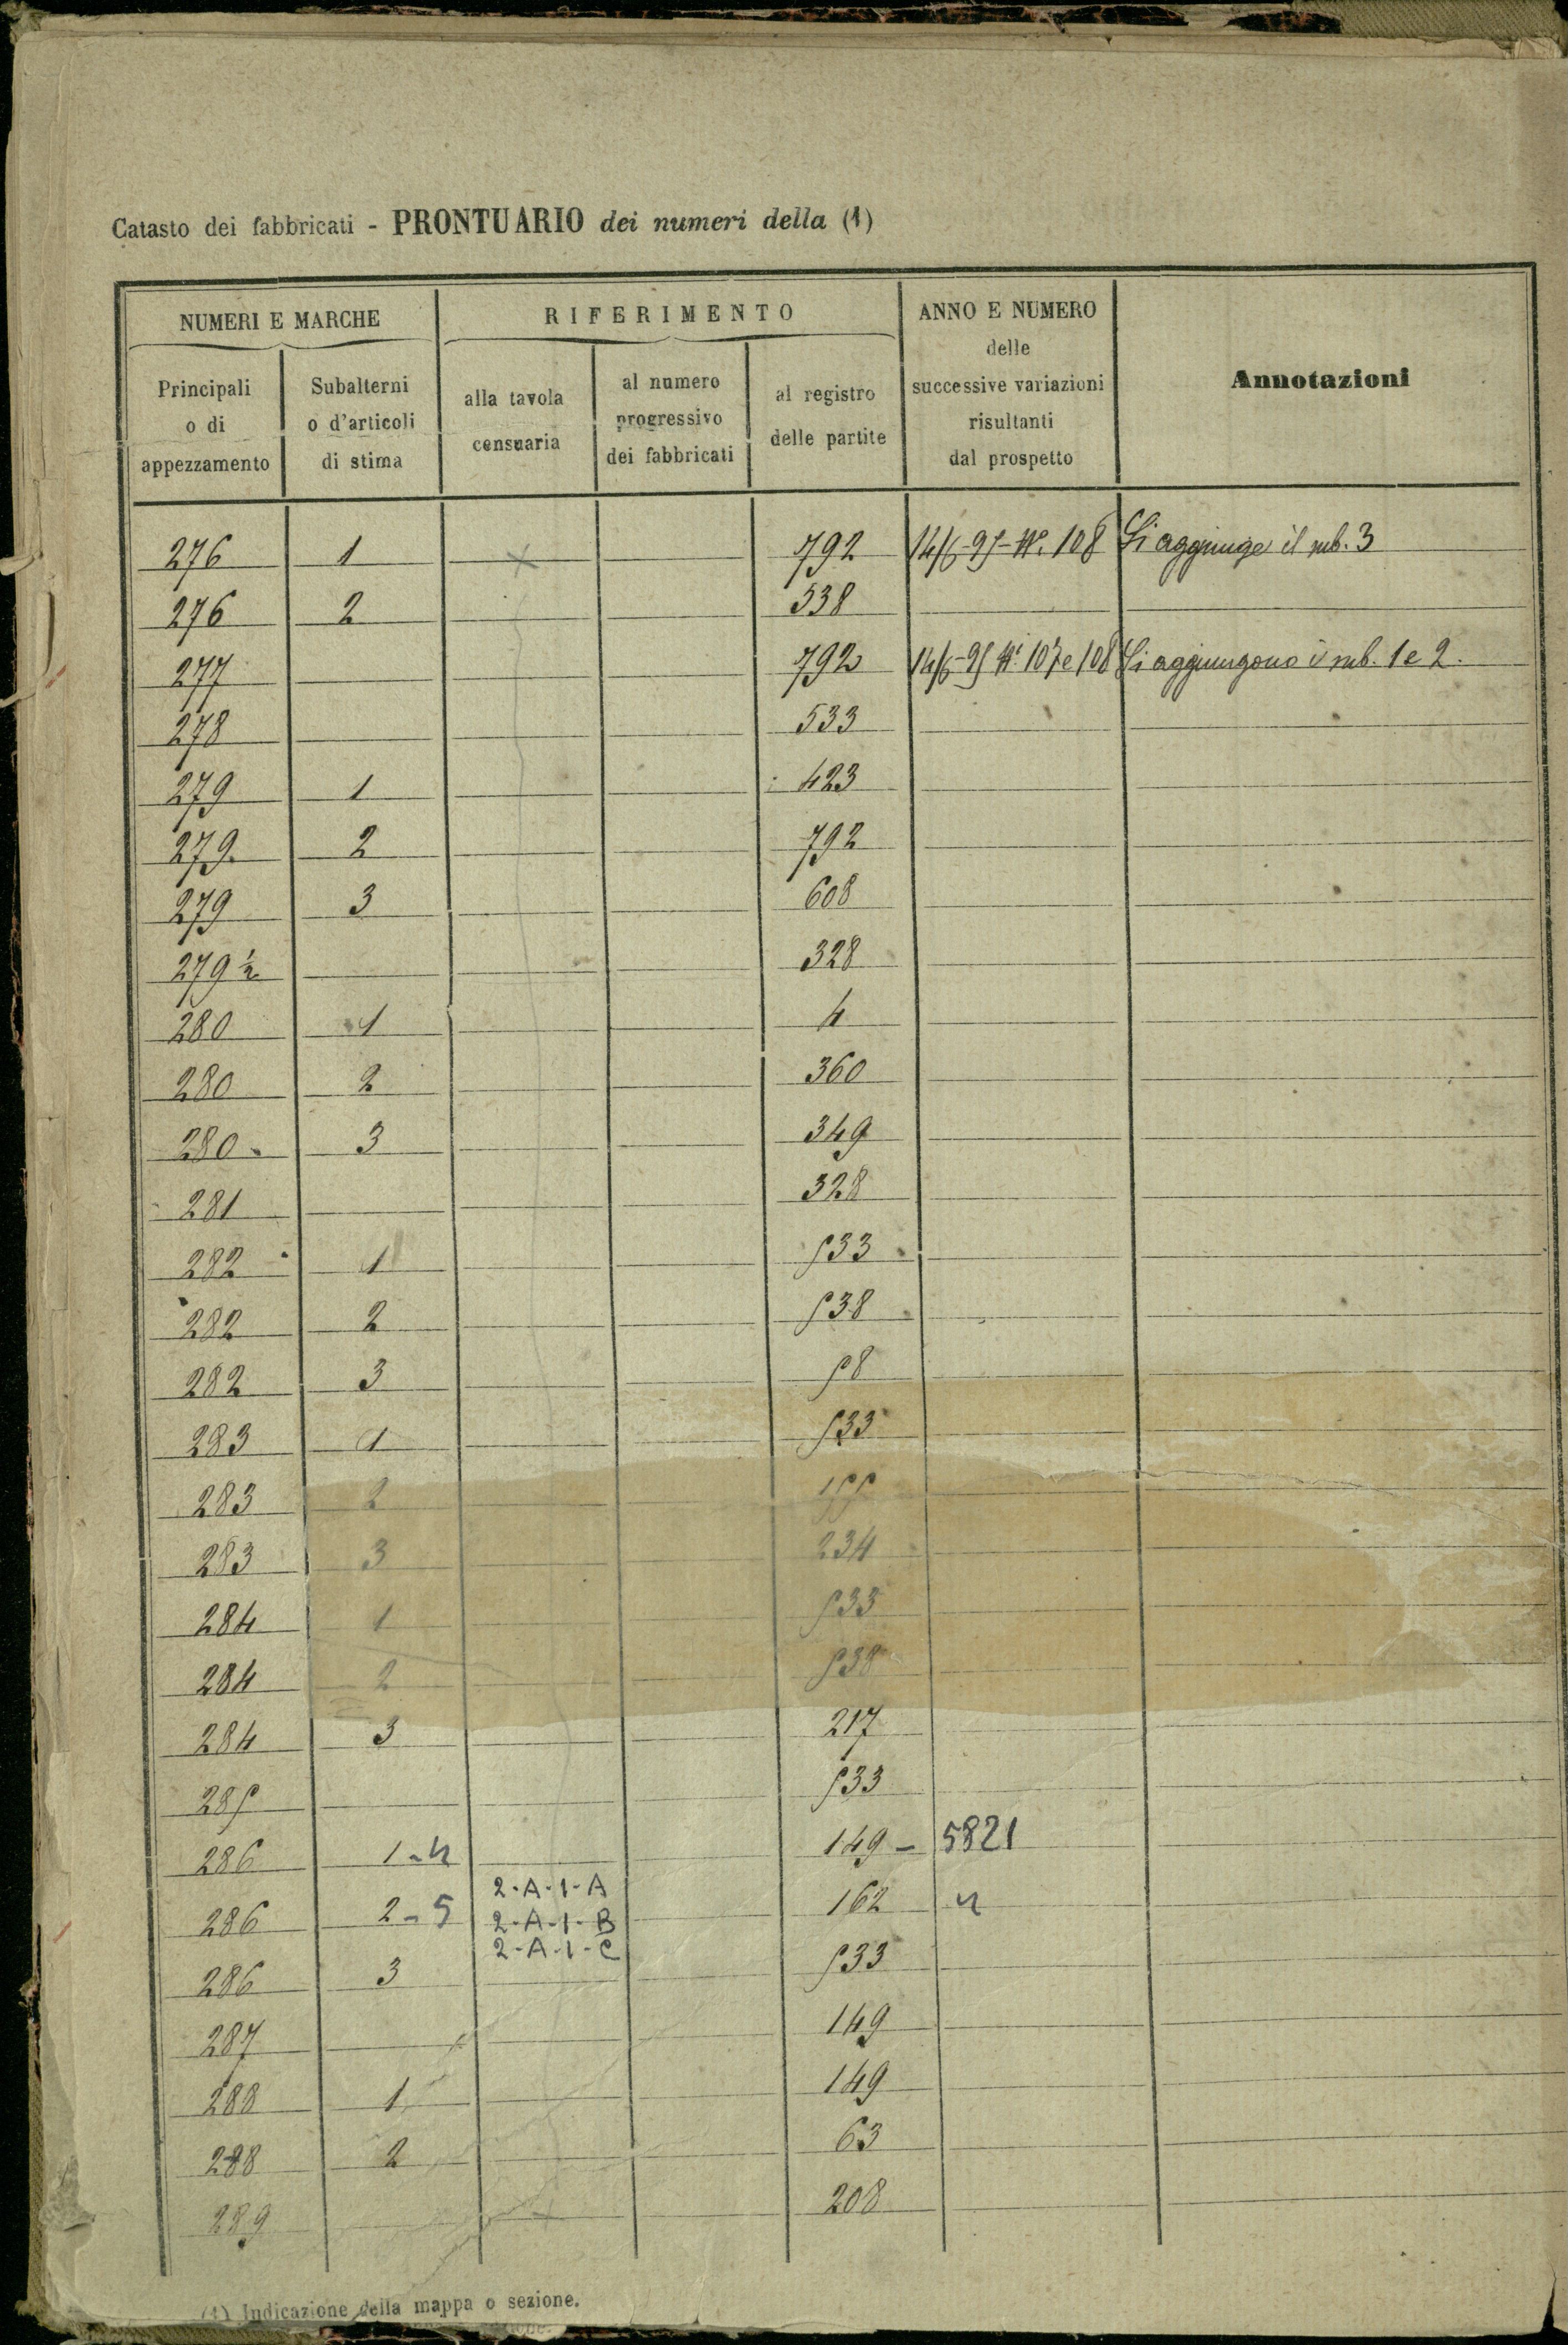 Catasto dei fabbricati - PRONTUARIO dei numeri della (1)
NUMERI E MARCHE
RIFERIMENTO
ANNO E NUMERO
delle
successive variazioni
risultanti
dal prospetto
Annotazioni
Principali
o di
appezzamento
Subalterni
o d'articoli
di stima
alla tavola
censuaria
al numero
progressivo
dei fabbricati
al registro
delle partite
276 1 792 14/6-95-N°. 108 Si aggiunge il sub. 3
276 2 538
277 792 14/6-95 N¹ 107 e 108 Si aggiungono i sub. 1 e 2.
278 533
279 1 423
279 2 792
279 3 608
279 ½ 328
280 1 4
280 2 360
280 3 349
281 328
282 1 533
282 2 538
282 3 58
283 1 533
283 2 155
283 3 234
284 1 533
284 2 538
284 3 217
285 533
286 1-4 149 - 5821
2-A-1-A
286 2-5 2-A-1-B 162 4
2-A-1-C
286 3 533
287 149
288 1 149
288 2 63
289 208
(1) Indicazione della mappa o sezione.